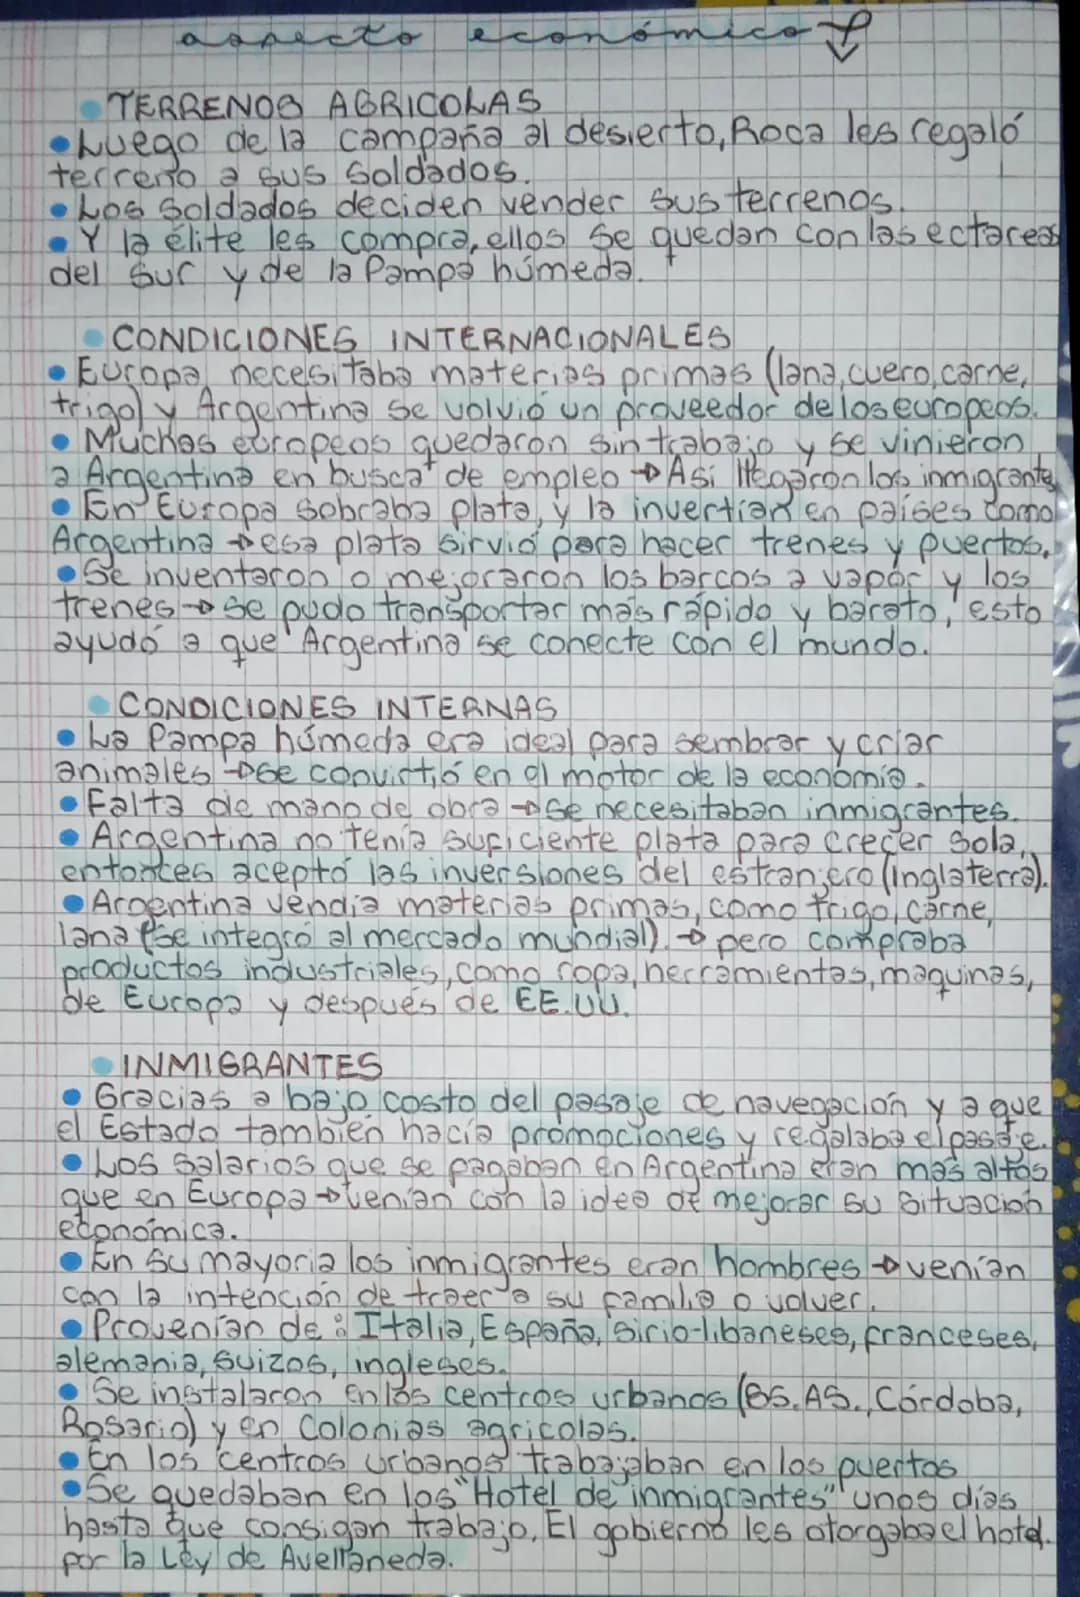 aspecto económico
TERRENOS AGRICOLAS
Luego de la campaña al desierto, Roca les regaló
terreno a sus soldados.
Los soldados deciden vender sus terrenos.
Y la élite les compra, ellos se quedan con las ectareas
del sur y de la Pampa húmeda.
CONDICIONES INTERNACIONALES
Europa necesitaba materias primas (lana, cuero, carne,
trigo) y Argentina se volvió un proveedor de los europeos.
Muchos europeos quedaron sin trabajo y se vinieron
a Argentina en busca de empleo → Asi llegaron los inmigrantes
En Europa sobraba plata, y la invertian en países como
Argentina → esa plata sirvió para hacer trenes y puertos.
Se inventaron o mejoraron los barcos a vapor y los
trenes → se pudo transportar más rápido y barato, esto
ayudó a que Argentina se conecte con el mundo.
CONDICIONES INTERNAS
La Pampa húmeda era ideal para sembrar y criar
animales → se convirtió en el motor de la economia.
Falta de mano de obra → se necesitaban inmigrantes.
Argentina no tenía suficiente plata para crecer sola,
entonces aceptó las inversiones del extranjero (Inglaterra).
Argentina vendia materias primas, como trigo, carne,
lana (se integró al mercado mundial). → pero compraba
productos industriales, como ropa, herramientas, maquinas,
de Europa y después de EE.UU.
INMIGRANTES
Gracias a bajo costo del pasaje de navegación y a que
el Estado también hacía promociones y regalaba el pasaje.
Los salarios que se pagaban en Argentina eran más altos
que en Europa → venían con la idea de mejorar su situación
económica.
En su mayoria los inmigrantes eran hombres → venían
con la intención de traer a su familia o volver.
Provenían de: Italia, España, sirio-libaneses, franceses,
alemania, suizos, ingleses.
Se instalaron en los centros urbanos (BS.AS., Córdoba,
Rosario) y en Colonias agricolas.
En los centros urbanos trabajaban en los puertos
Se quedaban en los "Hotel de inmigrantes" unos días
hasta que consigan trabajo. El gobierno les otorgaba el hotel.
por la Ley de Avellaneda.